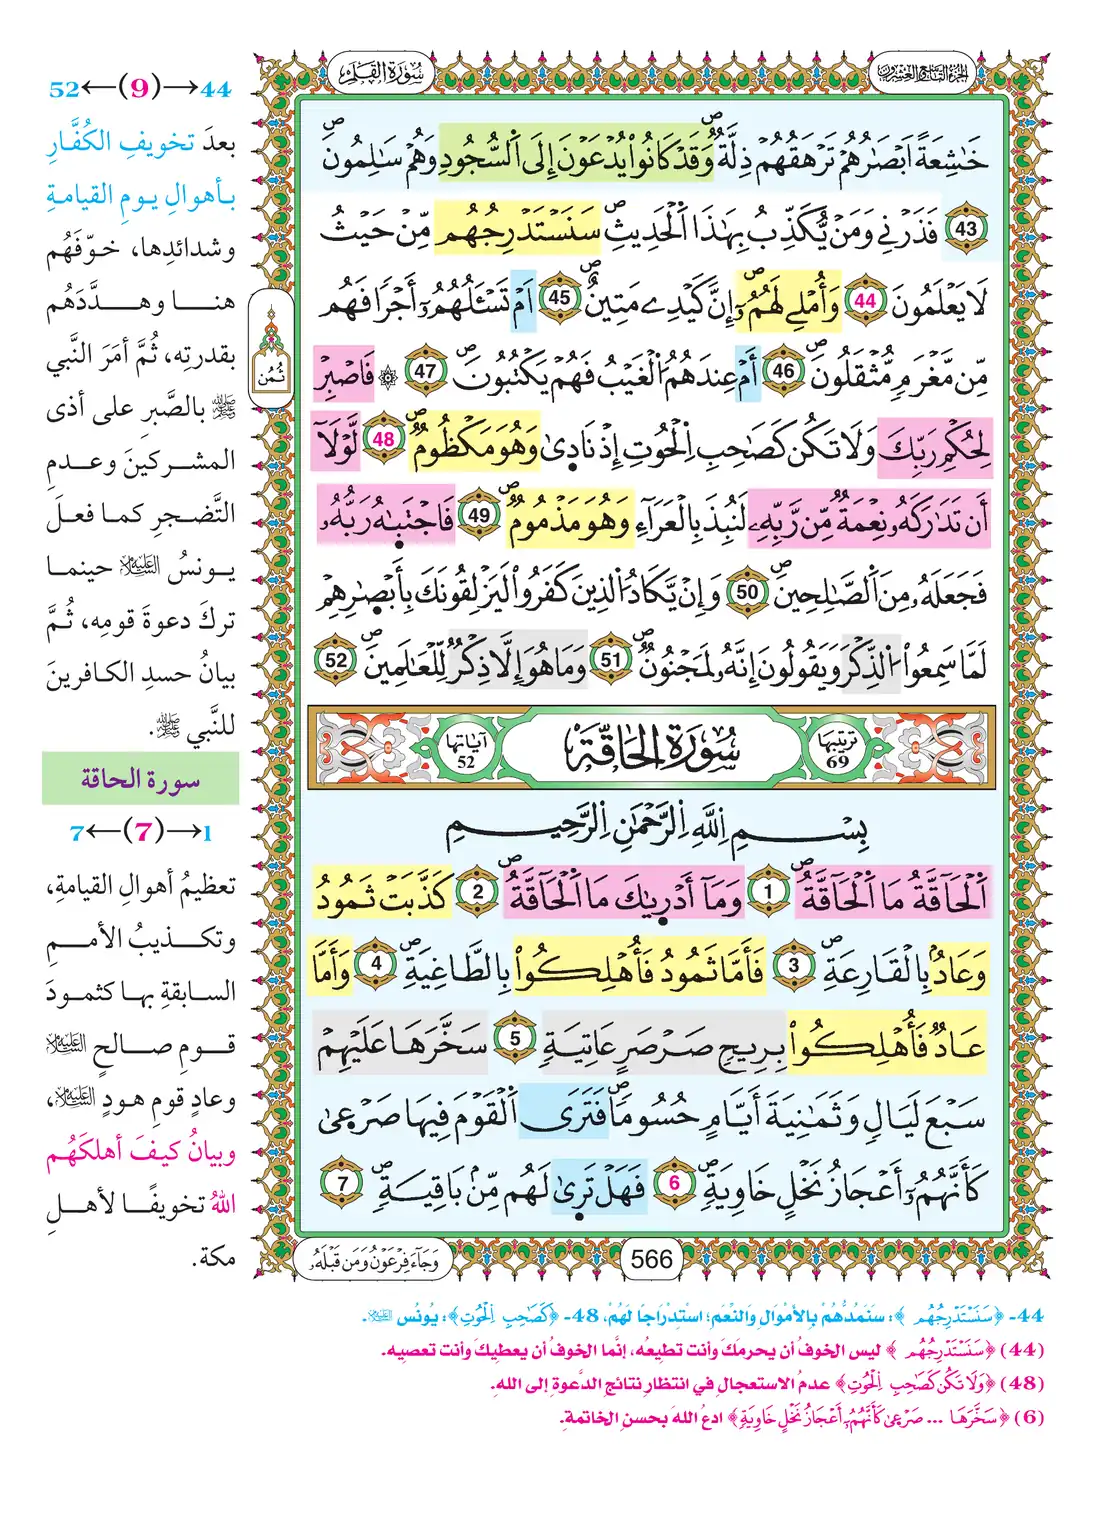 سُورَةُ القَلَمِ
الجزء التاسع والعشرون
خَٰشِعَةً اَبْصَٰرُهُمْ تَرْهَقُهُمْ ذِلَّةٌۖ وَقَدْ كَانُواْ يُدْعَوْنَ إِلَى اَلسُّجُودِ وَهُمْ سَٰلِمُونَۖ
43 فَذَرْنِے وَمَنْ يُّكَذِّبُ بِهَٰذَا اَلْحَدِيثِۖ سَنَسْتَدْرِجُهُم مِّنْ حَيْثُ
لَا يَعْلَمُونَ 44 وَأُمْلِے لَهُمُۥٓۖ إِنَّ كَيْدِے مَتِينٌۖ 45 اَمْ تَسْـَٔلُهُمُۥٓ أَجْرٗا فَهُم
مِّن مَّغْرَمٖ مُّثْقَلُونَۖ 46 أَمْ عِندَهُمُ اُلْغَيْبُ فَهُمْ يَكْتُبُونَۖ 47 ۞ فَاصْبِرْ
لِحُكْمِ رَبِّكَ وَلَا تَكُن كَصَاحِبِ اِلْحُوتِ إِذْ نَادٜىٰ وَهُوَ مَكْظُومٌۖ 48 لَّوْلَآ
أَن تَدَٰرَكَهُۥ نِعْمَةٌ مِّن رَّبِّهِۦ لَنُبِذَ بِالْعَرَآءِ وَهُوَ مَذْمُومٌۖ 49 فَاجْتَبَٰهُ رَبُّهُۥ
فَجَعَلَهُۥ مِنَ اَلصَّٰلِحِينَۖ 50 وَإِنْ يَّكَادُ اُلذِينَ كَفَرُواْ لَيَزْلِقُونَكَ بِأَبْصٰ۪رِهِمْ
لَمَّا سَمِعُواْ اُلذِّكْرَ وَيَقُولُونَ إِنَّهُۥ لَمَجْنُونٌۖ 51 وَمَا هُوَ إِلَّا ذِكْرٌ لِّلْعَٰلَمِينَۖ 52
ترتيبها 69 سُورَةُ الحَاقَّةِ آياتها 52
بِسْمِ اِللَّهِ اِلرَّحْمَٰنِ اِلرَّحِيمِ
اَلْحَآقَّةُ مَا اَلْحَآقَّةُۖ 1 وَمَآ أَدْر۪ىٰكَ مَا اَلْحَآقَّةُۖ 2 كَذَّبَتْ ثَمُودُ
وَعَادُۢ بِالْقَارِعَةِۖ 3 فَأَمَّا ثَمُودُ فَأُهْلِكُواْ بِالطَّاغِيَةِۖ 4 وَأَمَّا
عَادٌ فَأُهْلِكُواْ بِرِيحٖ صَرْصَرٍ عَاتِيَةٖ 5 سَخَّرَهَا عَلَيْهِمْ
سَبْعَ لَيَالٖ وَثَمَٰنِيَةَ أَيَّامٍ حُسُوماٗۖ فَتَرَى اَلْقَوْمَ فِيهَا صَرْعٜىٰ
كَأَنَّهُمُۥٓ أَعْجَازُ نَخْلٍ خَاوِيَةٖۖ 6 فَهَلْ تَر۪ىٰ لَهُم مِّنۢ بَاقِيَةٖۖ 7
ثُمُن
566
وَجَآءَ فِرْعَوْنُ وَمَن قَبْلَهُۥ
52←(9)→44
بعدَ تخويفِ الكُفَّارِ
بأهوالِ يومِ القيامةِ
وشدائدِها، خوَّفَهُم
هنا وهدَّدَهُم
بقدرتِه، ثُمَّ أمَرَ النَّبي
ﷺ بالصَّبرِ على أذى
المشركينَ وعدمِ
التَّضجرِ كما فعلَ
يونسُ عليه السلام حينما
تركَ دعوةَ قومِه، ثُمَّ
بيانُ حسدِ الكافرينَ
للنَّبي ﷺ.
سورة الحاقة
7←(7)→1
تعظيمُ أهوالِ القيامةِ،
وتكذيبُ الأممِ
السابقةِ بها كثمودَ
قومِ صالحٍ عليه السلام
وعادٍ قومِ هودٍ عليه السلام،
وبيانُ كيفَ أهلكَهُم
اللهُ تخويفًا لأهلِ
مكة.
44- ﴿سَنَسْتَدْرِجُهُم﴾: سَنَمُدُّهُمْ بِالأَمْوَالِ وَالنِّعَمِ؛ اسْتِدْرَاجًا لَهُمْ، 48- ﴿كَصَاحِبِ اِلْحُوتِ﴾: يُونُسَ عليه السلام.
(44) ﴿سَنَسْتَدْرِجُهُم﴾ ليس الخوفُ أن يحرمَكَ وأنت تطيعُه، إنَّما الخوفُ أن يعطيكَ وأنت تعصيه.
(48) ﴿وَلَا تَكُن كَصَاحِبِ اِلْحُوتِ﴾ عدمُ الاستعجالِ في انتظارِ نتائجِ الدَّعوةِ إلى اللهِ.
(6) ﴿سَخَّرَهَا ... صَرْعٜىٰ كَأَنَّهُمُۥٓ أَعْجَازُ نَخْلٍ خَاوِيَةٖ﴾ ادعُ اللهَ بحسنِ الخاتمةِ.